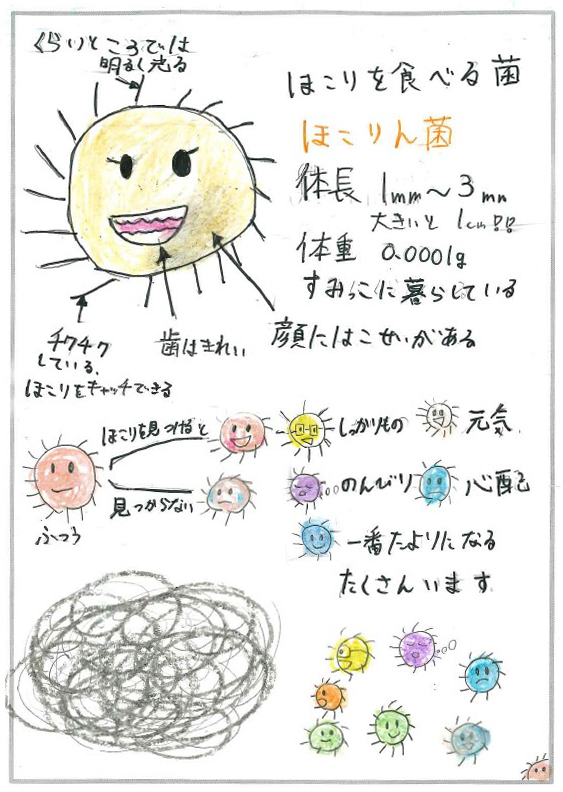 くらいところでは
明るく光る
ほこりを食べる菌
ほこりん菌
体長 1mm～3mm
大きいと 1cm!!
体重 0.0001g
すみっこに暮らしている
チクチク
している、
ほこりをキャッチできる
歯はきれい
顔にはこせいがある
ほこりを見つけると
見つからない
ふつう
しっかりもの
元気
のんびり
心配
一番たよりになる
たくさんいます